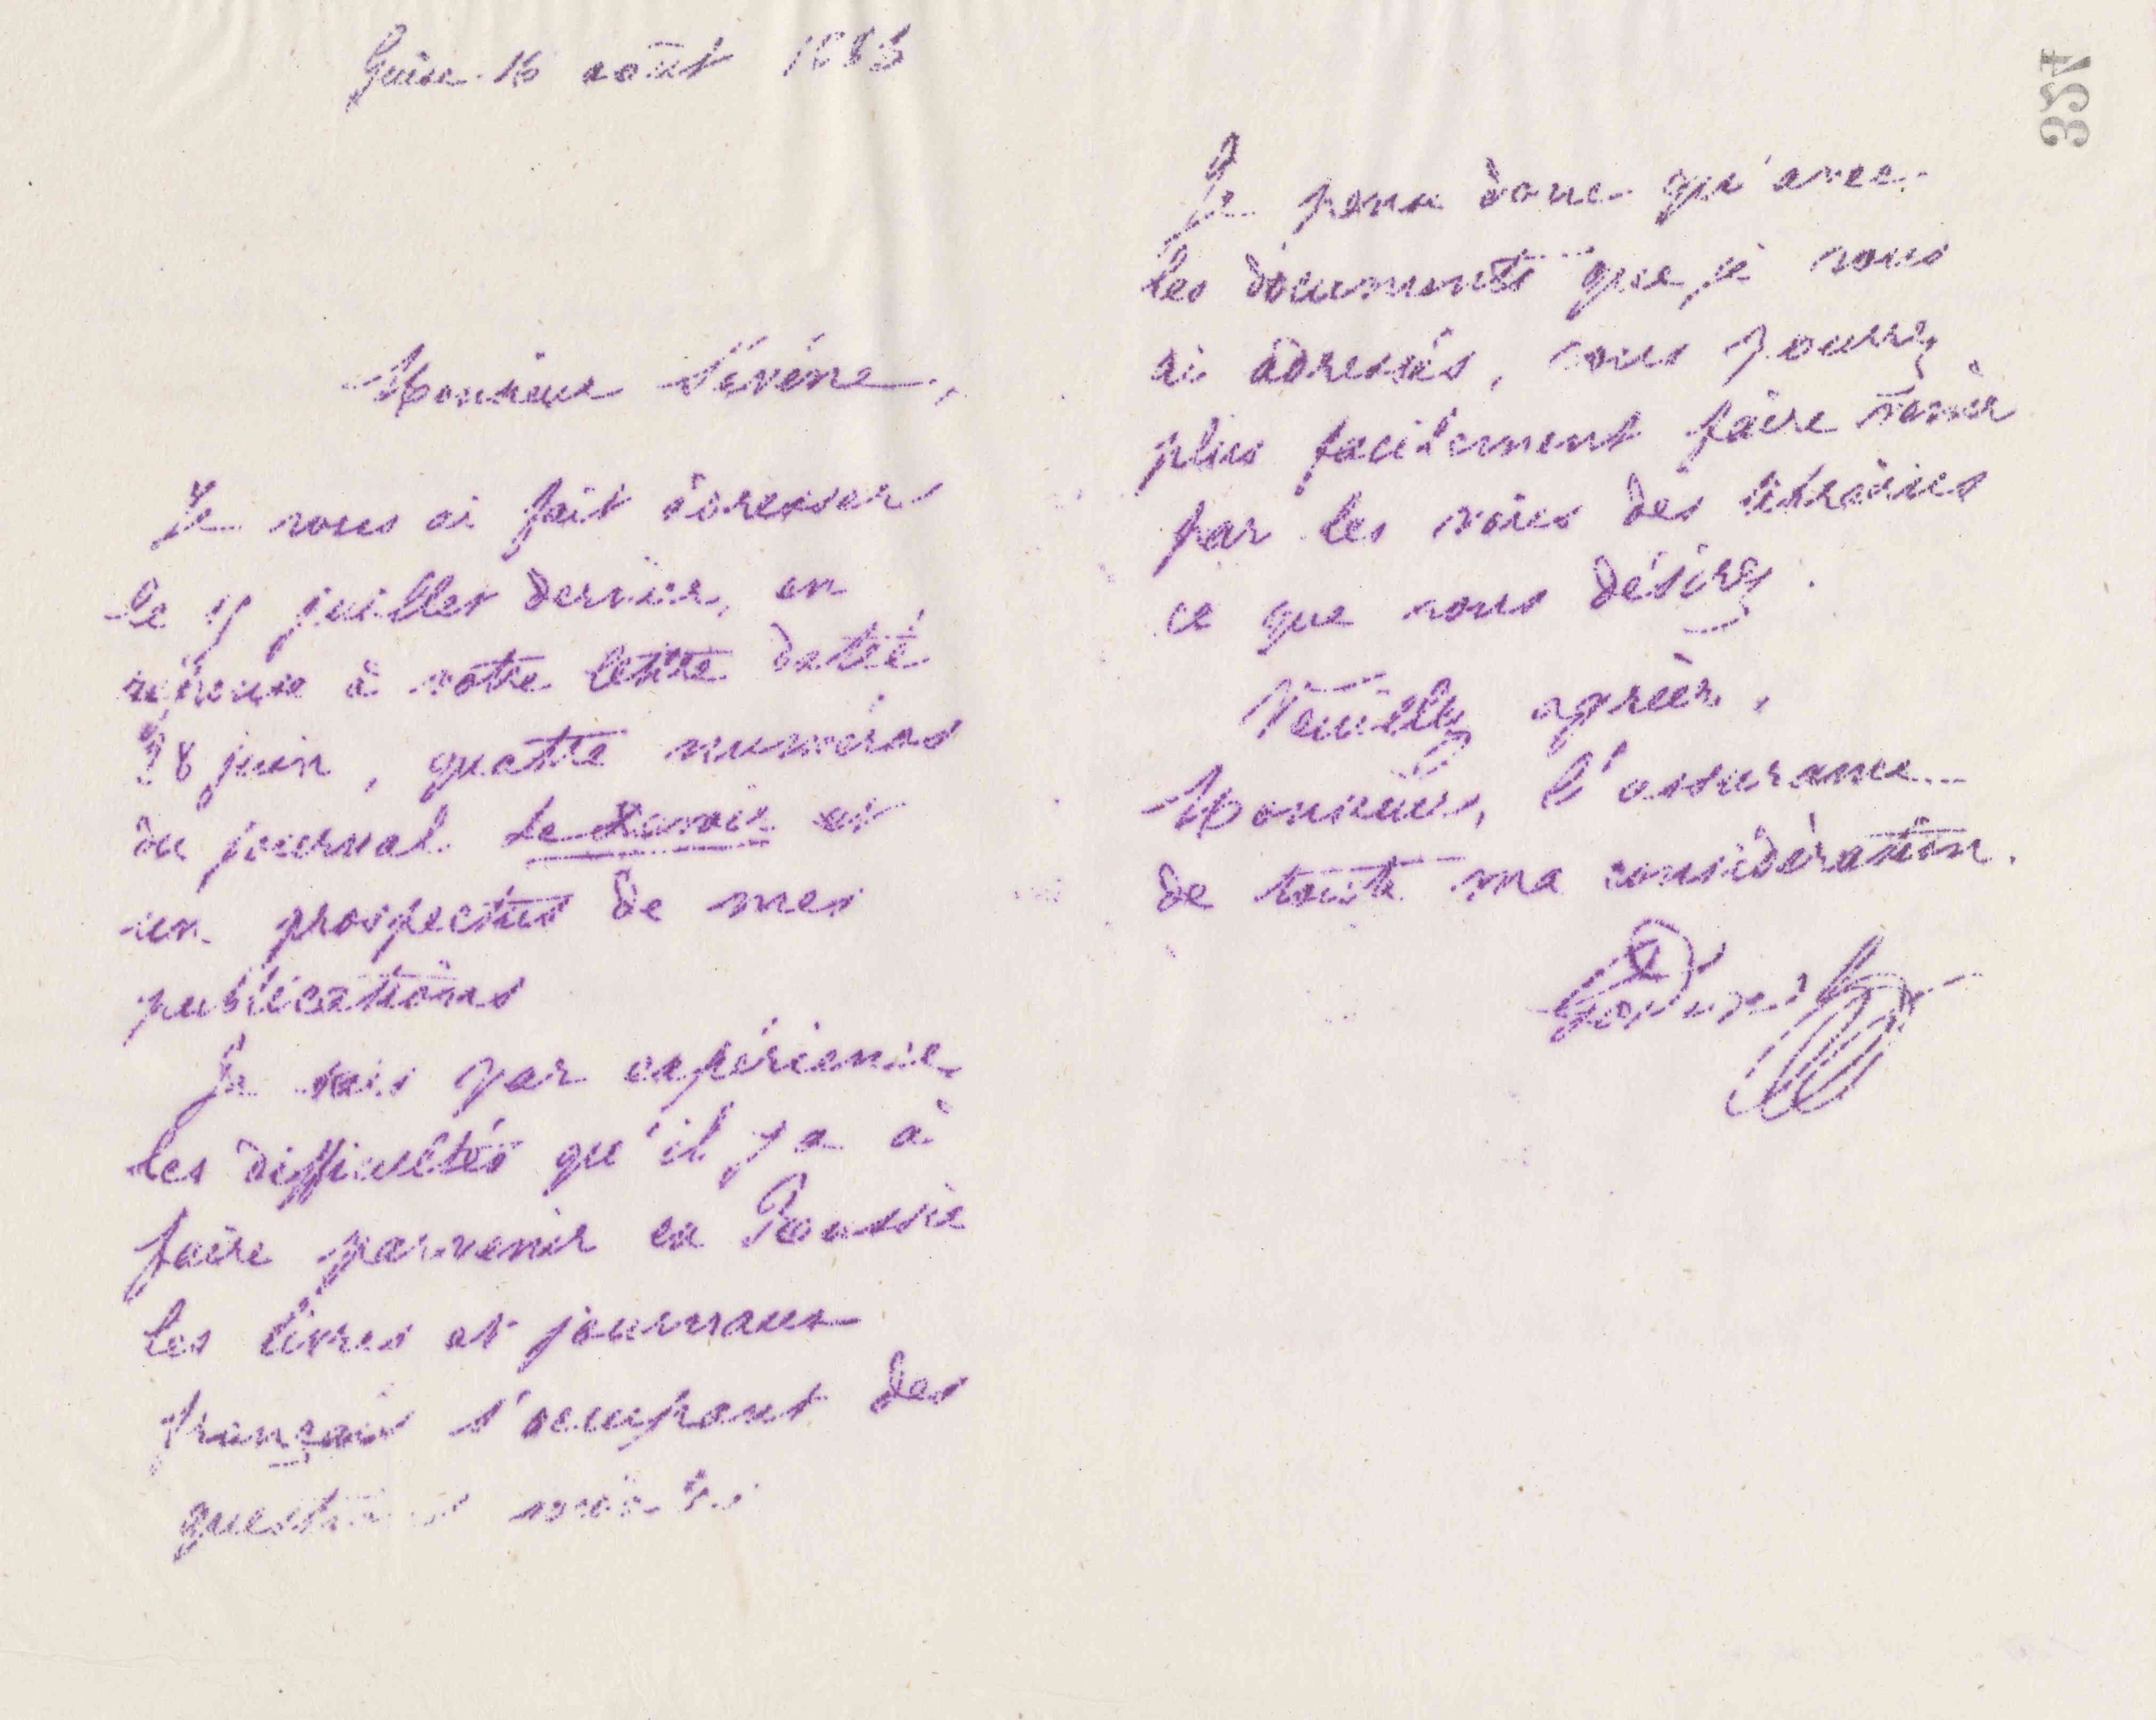 Guise 16 août 1883
Monsieur Sévène,
Je vous ai fait adresser
le 15 juillet dernier, en
réponse à votre lettre datée
28 juin, quatre numéros
du journal Le Devoir et
un prospectus de mes
publications
Je sais par expérience
les difficultés qu'il y a à
faire parvenir en Russie
les livres et journaux
français s'occupant des
questions
357
Je pense donc qu'avec
les documents que je vous
ai adressés, vous pourrez
plus facilement faire venir
par les voies des libraires
ce que vous désirez.
Veuillez agréer,
Monsieur, l'assurance
de toute ma considération.
Godin